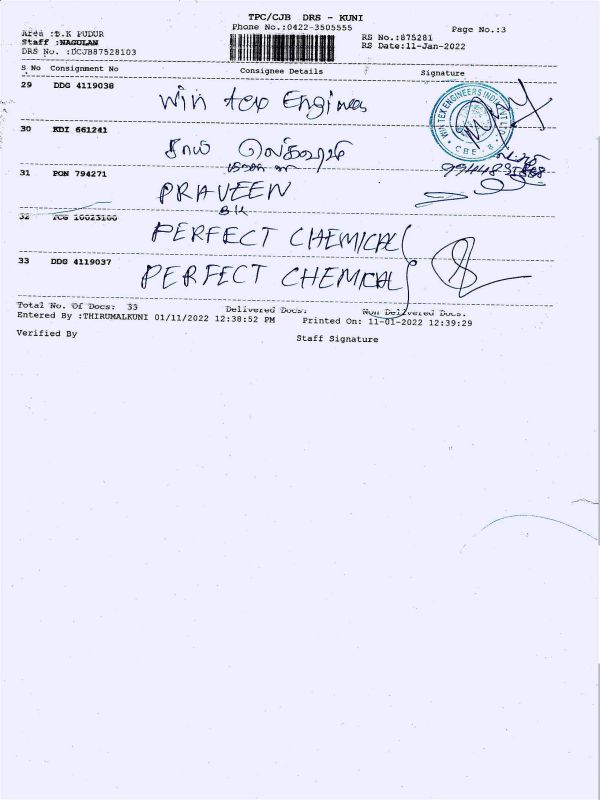 TPC/CJB DRS - KUNI
Phone No.:0422-3505555
Page No.:3
Area :B.K PUDUR
Staff :NAGULAN
RS No.:875281
DRS No. :DCJB87528103
RS Date:11-Jan-2022
S No Consignment No Consignee Details Signature
29 DDG 4119038 Win tex Engineers
WIN TEX ENGINEERS INDIA PVT LTD
CBE - 8
30 KDI 661241
31 PON 794271 PRAVEEN
BK
32 10023100 PERFECT CHEMICAL
33 DDG 4119037 PERFECT CHEMICAL
Total No. Of Docs: 33 Delivered Docs: Non Delivered Docs.
Entered By :THIRUMALKUNI 01/11/2022 12:38:52 PM Printed On: 11-01-2022 12:39:29
Verified By Staff Signature